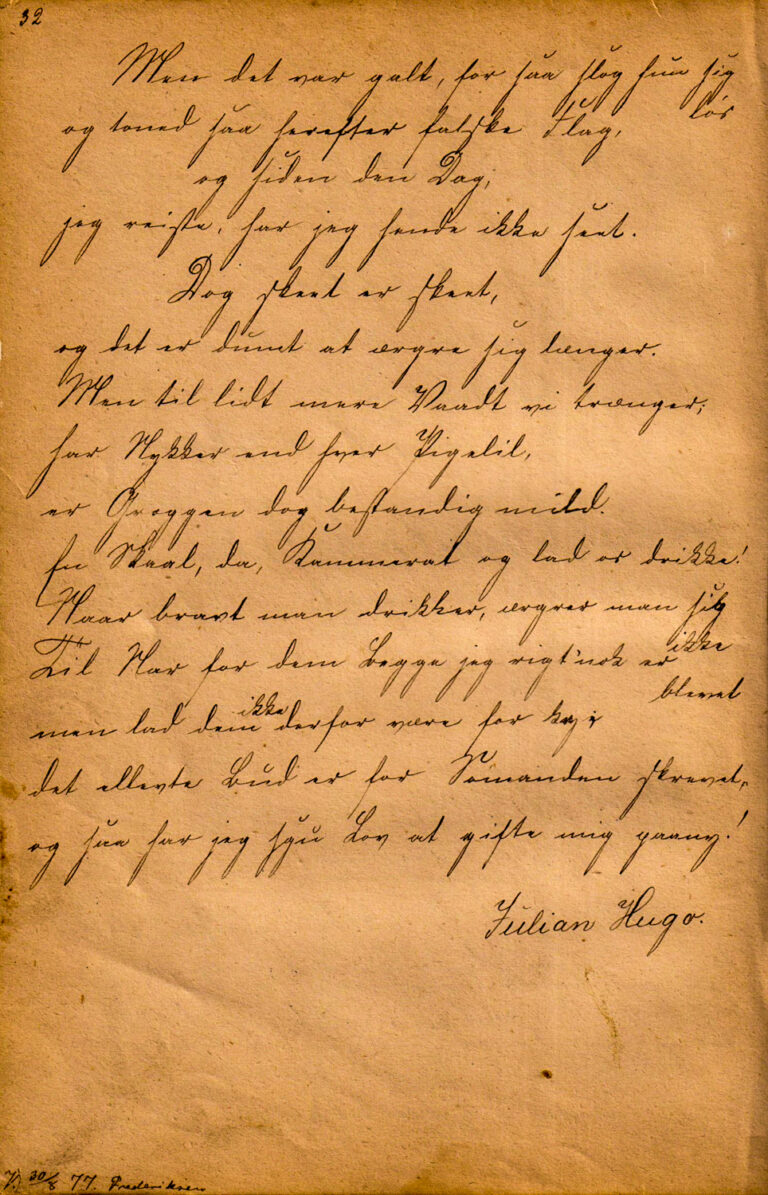 32
Men det var galt, for saa slog hun sig løs
og toned saa herefter falske Flag,
og siden den Dag,
jeg reiste, har jeg hende ikke seet.
Dog skeet er skeet,
og det er dumt at ærgre sig længer.
Men til lidt mere Vaadt vi trænger;
har Nykker end hver Pigelil,
er Groggen dog bestandig mild.
En Skaal, da, Kammerat og lad os drikke!
Naar bravt man drikker, ærgrer man sig ikke
Til Nar for dem Begge jeg rigt'nok er blevet
men lad dem ikke derfor være for kry;
det ellevte Bud er for Sømanden skrevet,
og saa har jeg sgu Lov at gifte mig paany!
Julian Hugo.
30/8 77. Frederiksen